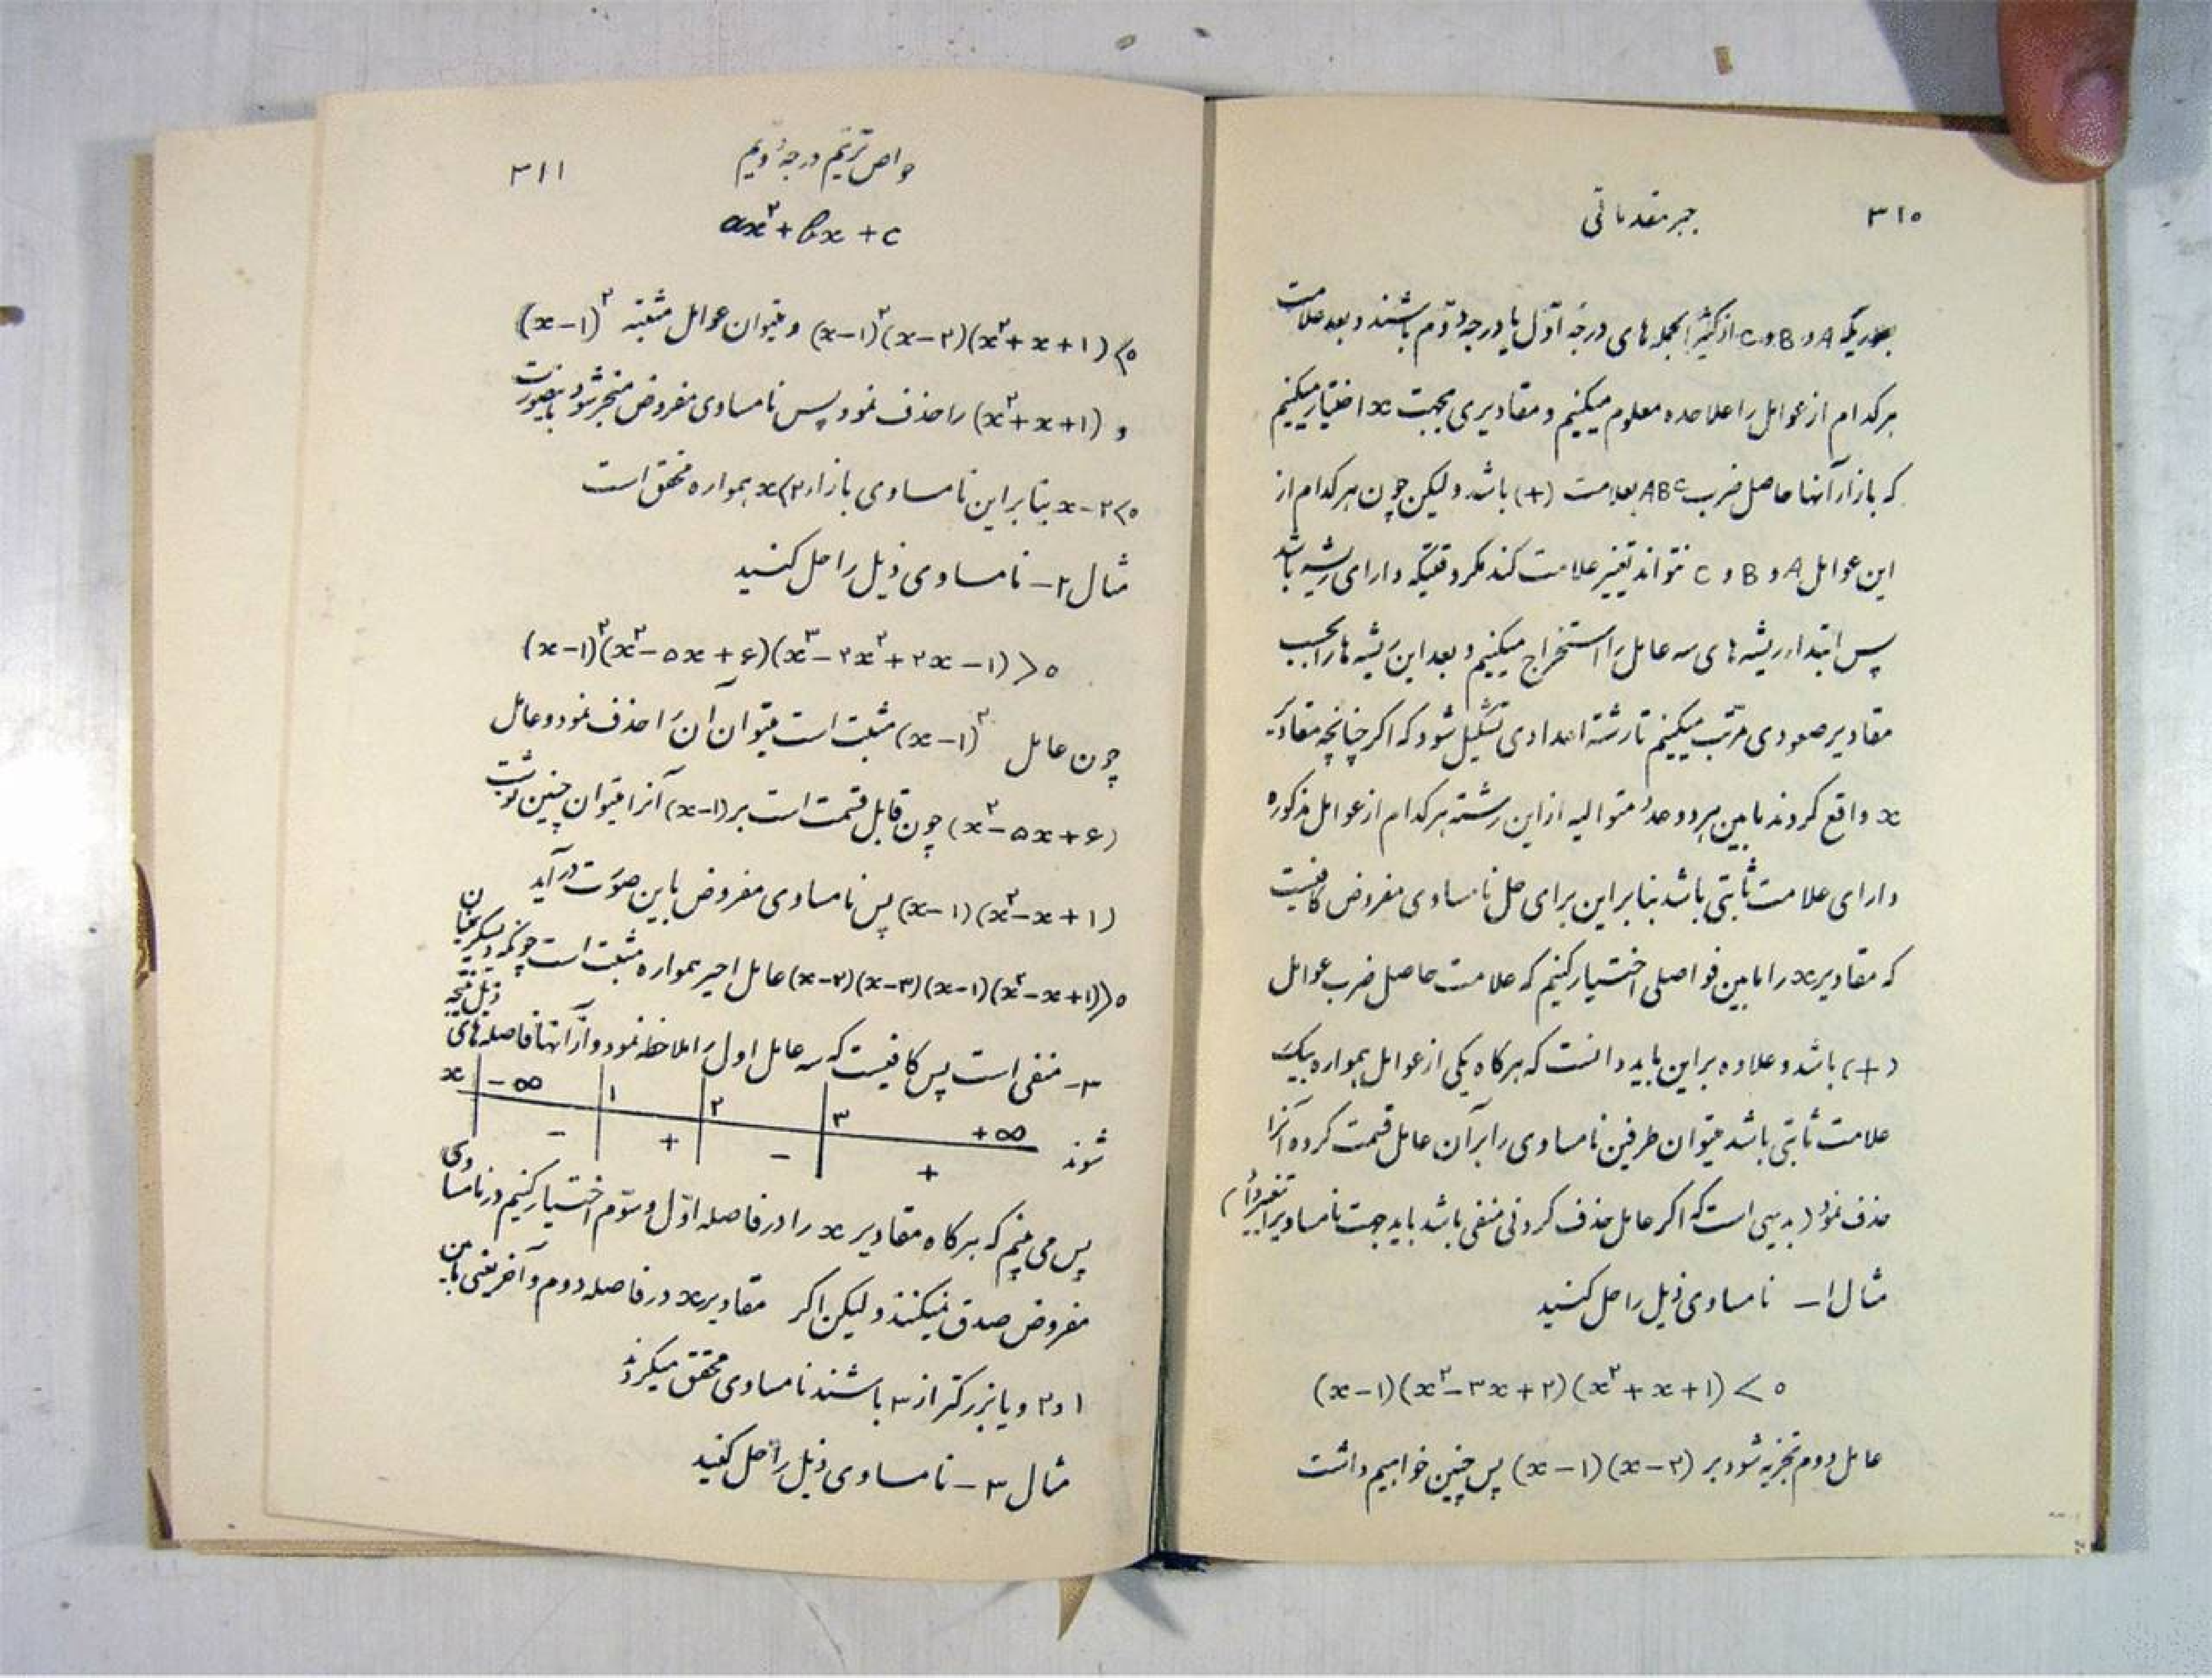 ۳۱۰ جبر مقدماتی
بطوریکه A و B و C از کثیرالجمله های درجهٔ اول یا درجهٔ دوم باشند و بعد علامت
هر کدام از عوامل را علاحده معلوم میکنیم و مقادیری بجهت x اختیار میکنیم
که بازار آنها حاصل ضرب ABC بعلامت (+) باشد ولیکن چون هر کدام از
این عوامل A و B و C نتواند تغییر علامت کند مگر وقتیکه دارای ریشه باشد
پس ابتدا ریشه های سه عامل را استخراج میکنیم و بعد این ریشه ها را بحسب
مقادیر صعودی مرتب میکنیم تا رشتهٔ اعدادی تشکیل شود که اگر چنانچه مقادیر
x واقع گردند مابین هر دو حد متوالیه از این رشته هر کدام از عوامل مذکوره
دارای علامت ثابتی باشد بنابراین برای حل نامساوی مفروض کافیست
که مقادیر x را مابین فواصلی اختیار کنیم که علامت حاصل ضرب عوامل
(+) باشد و علاوه براین باید دانست که هرگاه یکی از عوامل همواره بیک
علامت ثابتی باشد میتوان طرفین نامساوی را برآن عامل قسمت کرده آنرا
حذف نمود (بدیهی است که اگر عامل حذف کردنی منفی باشد باید جهت نامساویرا تغییر داد)
مثال ۱ــ نامساوی ذیل را حل کنید
(x−۱)(x۲−۳x+۲)(x۲+x+۱) < ۰
عامل دوم تجزیه شود بر (x−۱)(x−۲) پس چنین خواهیم داشت
خواص ترینم درجهٔ دویم ۳۱۱
ax۲+bx+c
(x−۱)۲(x−۲)(x۲+x+۱)<۰ و میتوان عوامل مثبته (x−۱)۲
و (x۲+x+۱) را حذف نمود پس نامساوی مفروض منجر شود باینصورت
x−۲<۰ بنابراین نامساوی بازار x<۲ همواره محقق است
مثال ۲ــ نامساوی ذیل را حل کنید
(x−۱)۲(x۲−۵x+۶)(x۳−۲x۲+۲x−۱)>۰
چون عامل (x−۱)۲ مثبت است میتوان آن را حذف نمود و عامل
(x۲−۵x+۶) چون قابل قسمت است بر (x−۱) آنرا میتوان چنین نوشت
(x−۱)(x۲−x+۱) پس نامساوی مفروض باین صورت در آید
(x−۲)(x−۳)(x−۱)(x۲−x+۱)>۰ عامل اخیر همواره مثبت است چونکه
۳− منفی است پس کافیست که سه عامل اول را ملاحظه نمود و از آنها فاصله های ذیل نتیجه
شوند
x | −∞ | ۱ | ۲ | ۳ +∞
− | + | − | +
پس می بینیم که هرگاه مقادیر x را در فاصله اول و سوم اختیار کنیم در نامساوی
مفروض صدق نمیکنند ولیکن اگر مقادیر x در فاصله دوم و آخر یعنی مابین
۱ و ۲ و یا بزرگتر از ۳ باشند نامساوی محقق میگردند
مثال ۳ــ نامساوی ذیل را حل کنید